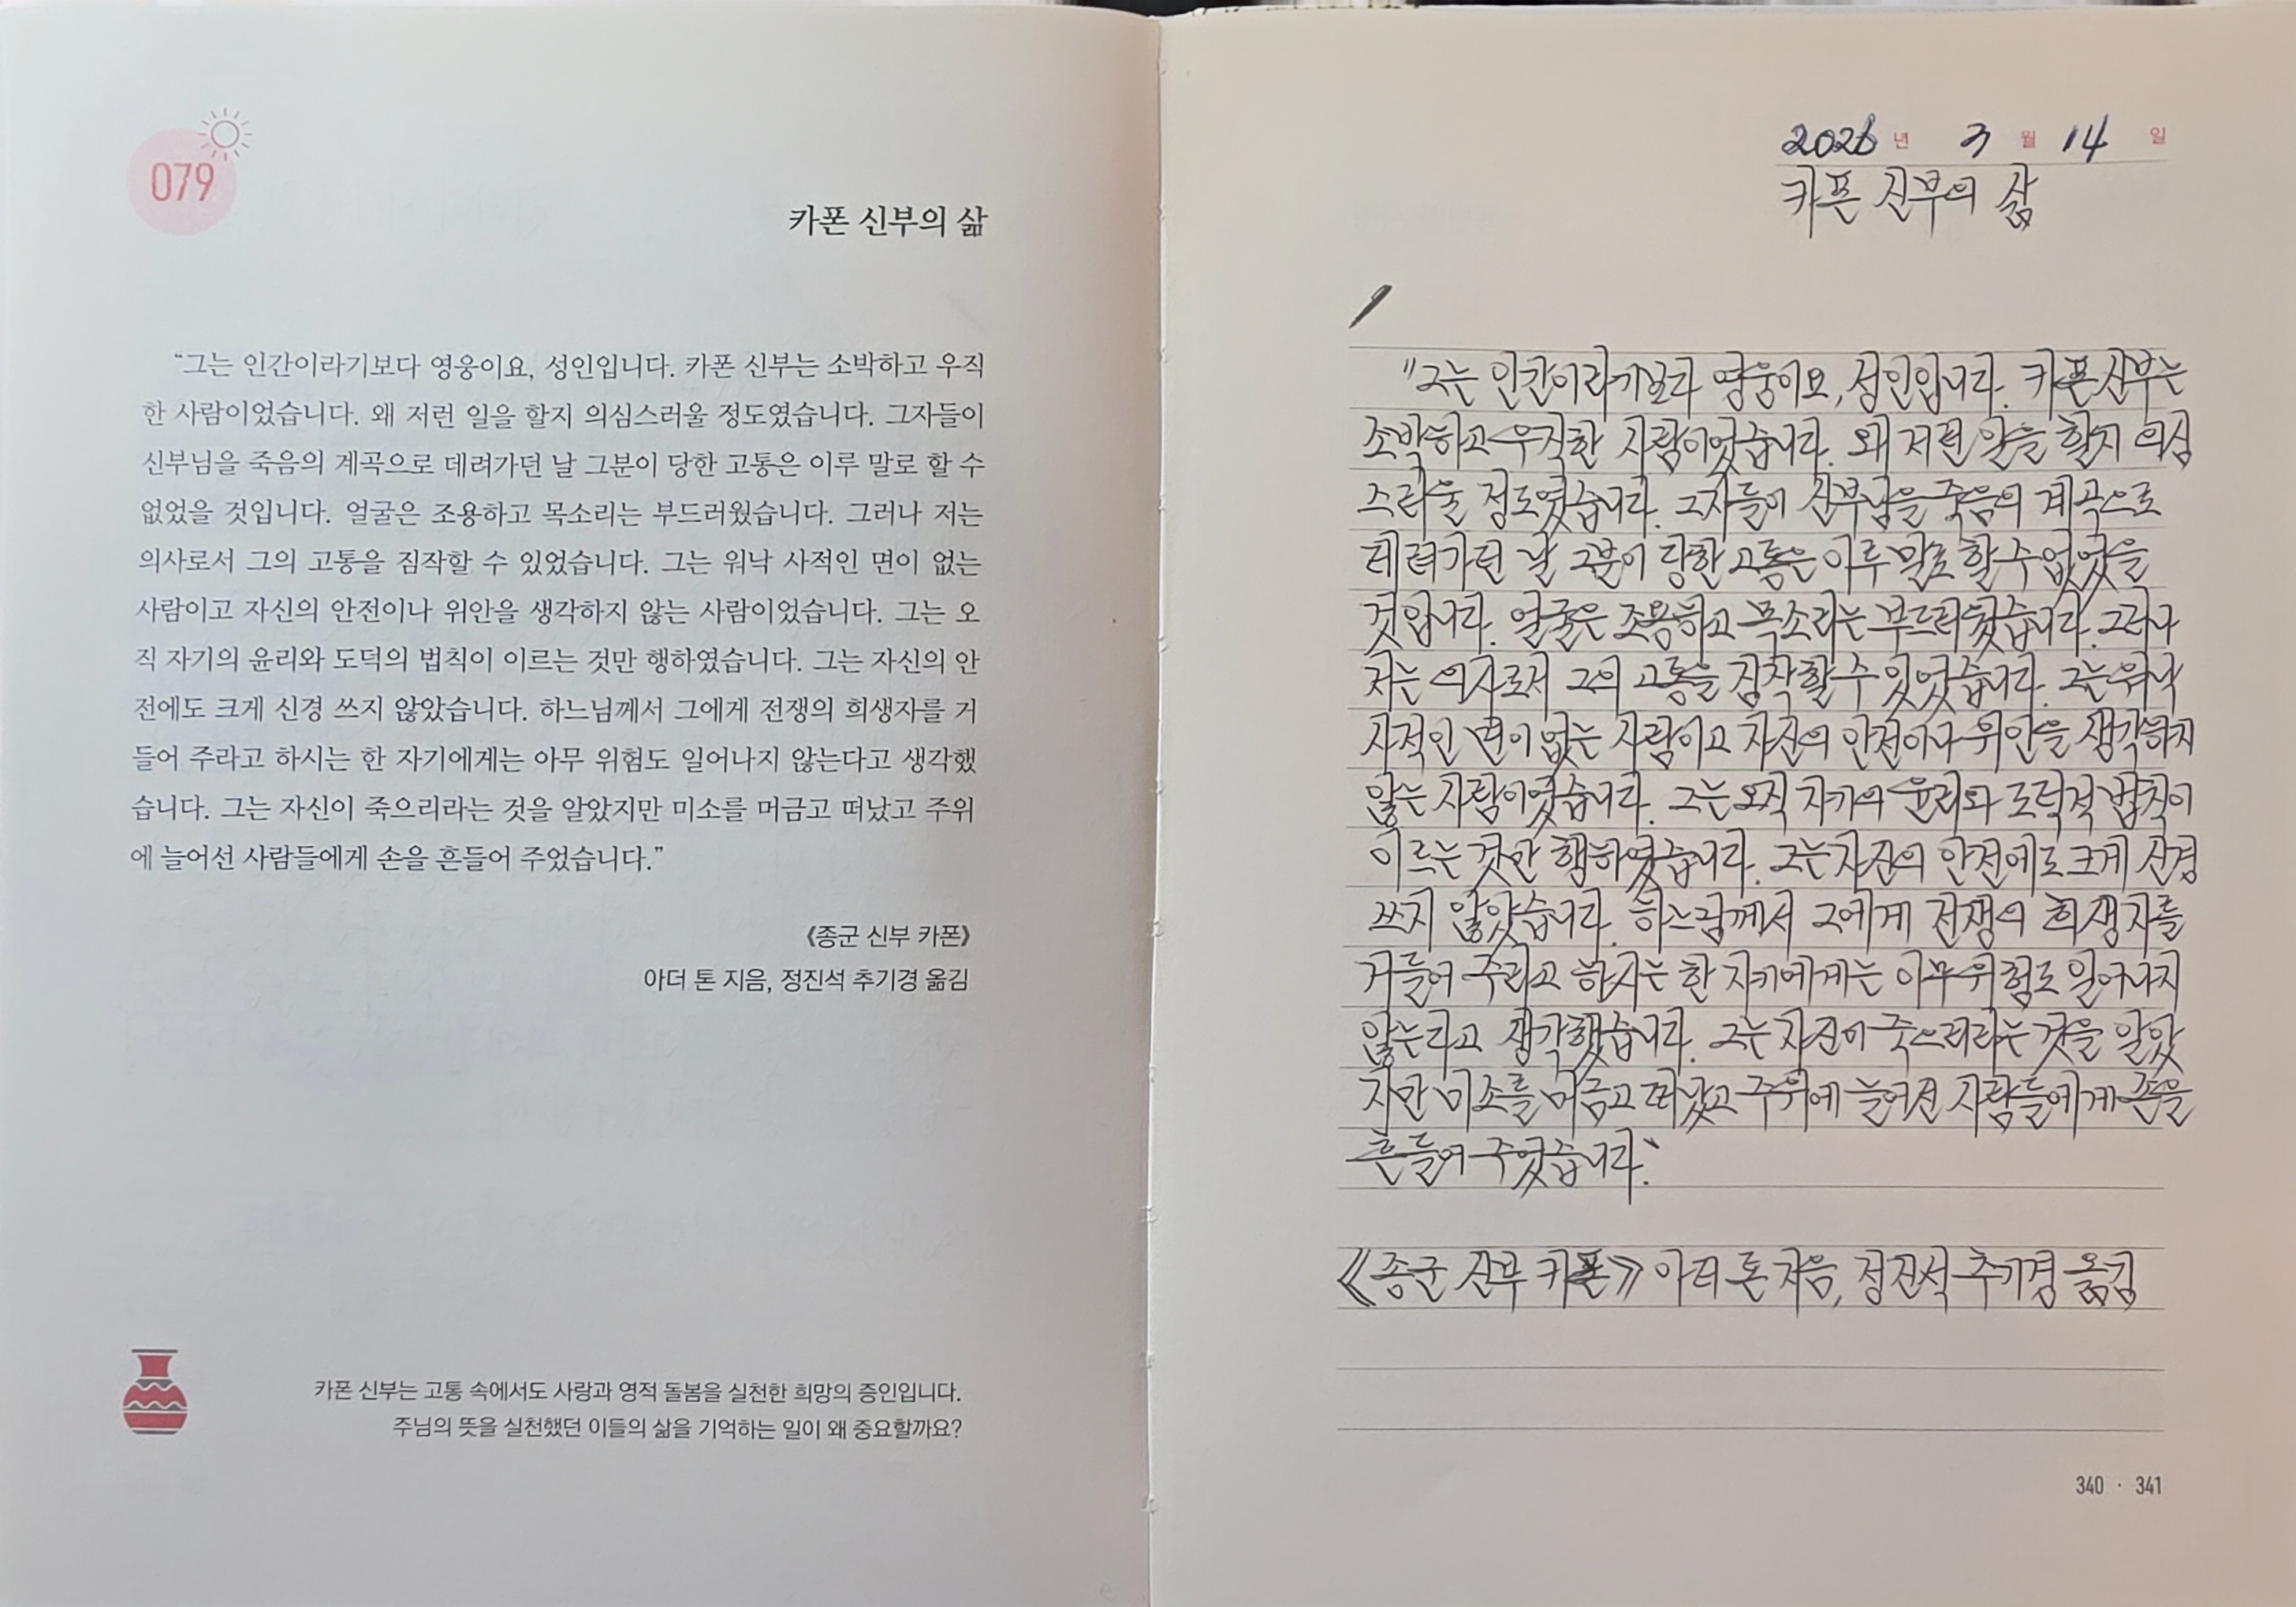 079
카폰 신부의 삶
“그는 인간이라기보다 영웅이요, 성인입니다. 카폰 신부는 소박하고 우직
한 사람이었습니다. 왜 저런 일을 할지 의심스러울 정도였습니다. 그자들이
신부님을 죽음의 계곡으로 데려가던 날 그분이 당한 고통은 이루 말로 할 수
없었을 것입니다. 얼굴은 조용하고 목소리는 부드러웠습니다. 그러나 저는
의사로서 그의 고통을 짐작할 수 있었습니다. 그는 워낙 사적인 면이 없는
사람이고 자신의 안전이나 위안을 생각하지 않는 사람이었습니다. 그는 오
직 자기의 윤리와 도덕의 법칙이 이르는 것만 행하였습니다. 그는 자신의 안
전에도 크게 신경 쓰지 않았습니다. 하느님께서 그에게 전쟁의 희생자를 거
들어 주라고 하시는 한 자기에게는 아무 위험도 일어나지 않는다고 생각했
습니다. 그는 자신이 죽으리라는 것을 알았지만 미소를 머금고 떠났고 주위
에 늘어선 사람들에게 손을 흔들어 주었습니다.”
《종군 신부 카폰》
아더 톤 지음, 정진석 추기경 옮김
카폰 신부는 고통 속에서도 사랑과 영적 돌봄을 실천한 희망의 증인입니다.
주님의 뜻을 실천했던 이들의 삶을 기억하는 일이 왜 중요할까요?
2026년 3월 14일
카폰 신부의 삶
"그는 인간이라기보다 영웅이요, 성인입니다. 카폰 신부는
소박하고 우직한 사람이었습니다. 왜 저런 일을 할지 의심
스러울 정도였습니다. 그자들이 신부님을 죽음의 계곡으로
데려가던 날 그분이 당한 고통은 이루 말로 할 수 없었을
것입니다. 얼굴은 조용하고 목소리는 부드러웠습니다. 그러나
저는 의사로서 그의 고통을 짐작할 수 있었습니다. 그는 워낙
사적인 면이 없는 사람이고 자신의 안전이나 위안을 생각하지
않는 사람이었습니다. 그는 오직 자기의 윤리와 도덕적 법칙이
이르는 것만 행하였습니다. 그는 자신의 안전에도 크게 신경
쓰지 않았습니다. 하느님께서 그에게 전쟁의 희생자를
거들어 주라고 하시는 한 자기에게는 아무 위험도 일어나지
않는다고 생각했습니다. 그는 자신이 죽으리라는 것을 알았
지만 미소를 머금고 떠났고 주위에 늘어선 사람들에게 손을
흔들어 주었습니다."
《종군 신부 카폰》 아더 톤 지음, 정진석 추기경 옮김
340 · 341